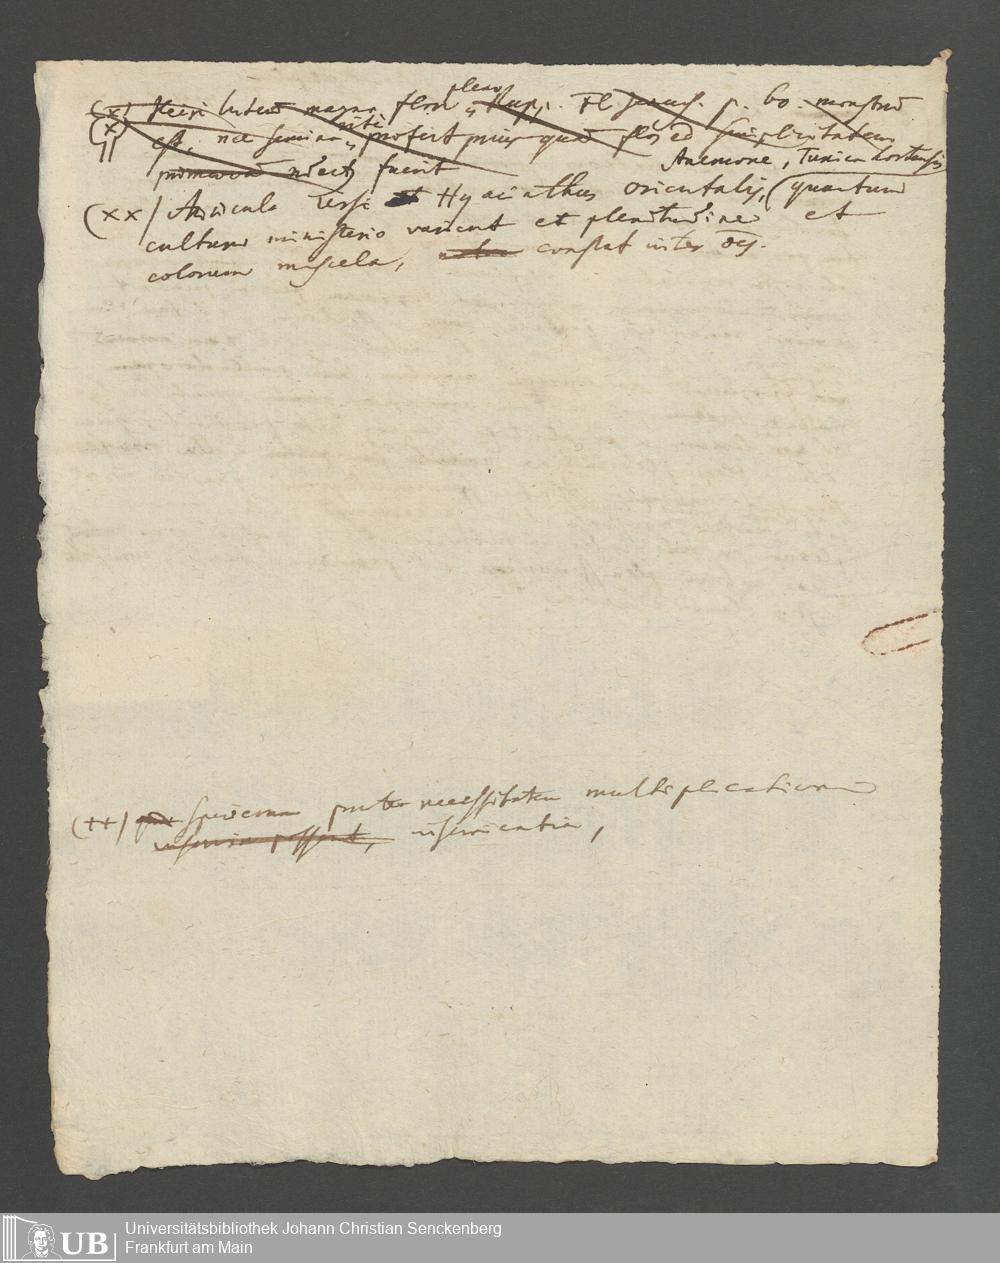 (x) Keiri luteum magno flore pleno Rupp. Fl. Jenens. p. 60. monstrum
est, nec semina profert prius quam flos ad simplicitatem
primaevam fuerit
Anemone, Tunica hortensis
(xx) Auricula Ursi et Hyacinthus orientalis, (quantum
culturae ministerio varient et plenitudine et
colorum miscela, constat inter
(++) Speciem necessitatem multiplicationis
Universitätsbibliothek Johann Christian Senckenberg
UB Frankfurt am Main